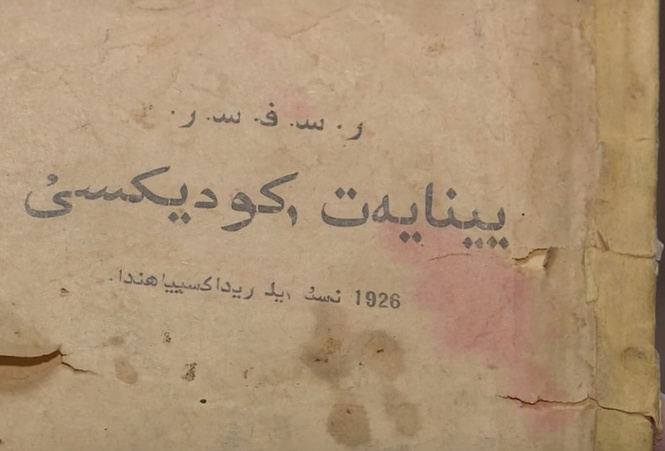 ر. س. ف. س. ر.
يېنايەت ,كوديكسىٔ
1926 نسىٔ ,يل ريداكسيياهندا.